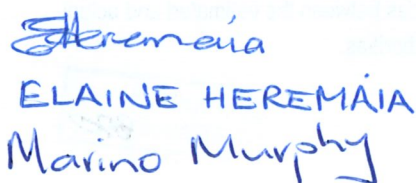 EHeremaia
ELAINE HEREMÁIA
Marino Murphy